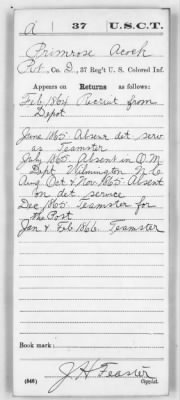 A | 37 | U.S.C.T.
Primrose Acock
Pvt., Co. D, 37 Reg't U. S. Colored Inf.
Appears on Returns as follows:
Feb 1864 Recruit from
Depot
June 1865 Absent det serv
as Teamster
July 1865 Absent in Q M
Dept Wilmington N.C
Aug Oct & Nov 1865 Absent
on det service
Dec 1865 Teamster for
the Post
Jan & Feb 1866 Teamster
Book mark:
(546)
J H Feaster
Copyist.